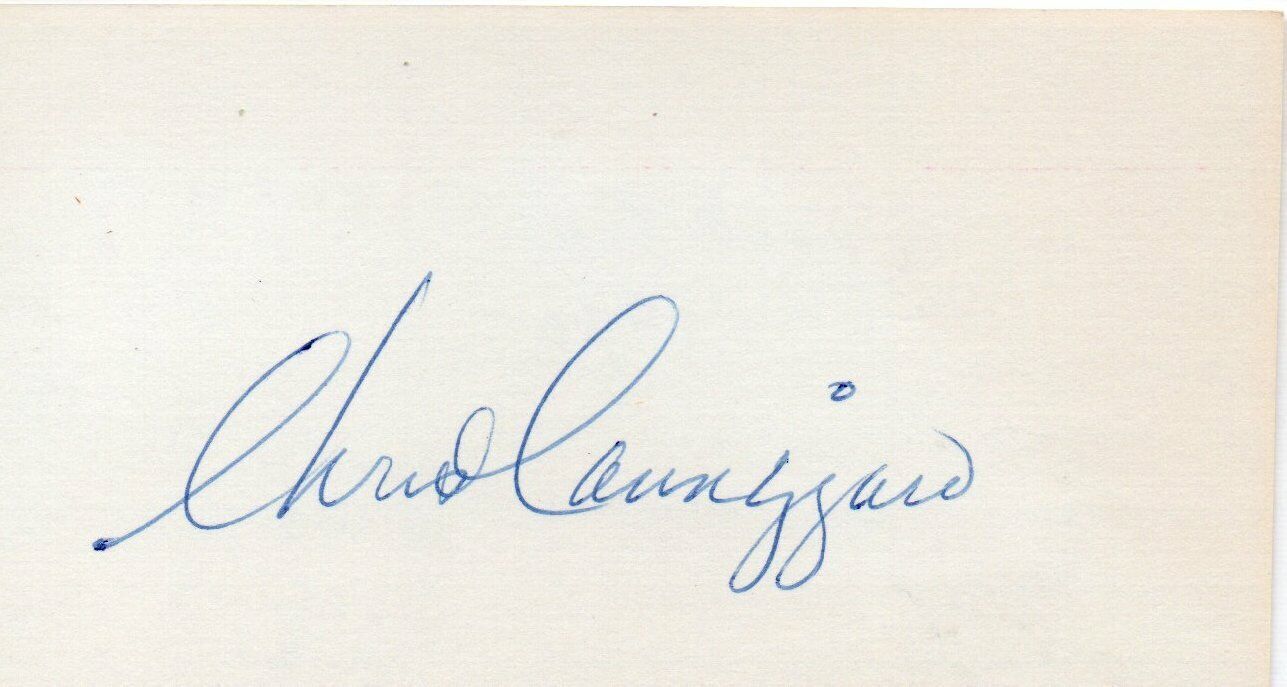 Chris Cannizzaro